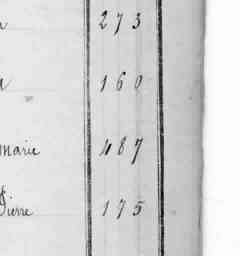 273
160
marie 487
Pierre 175